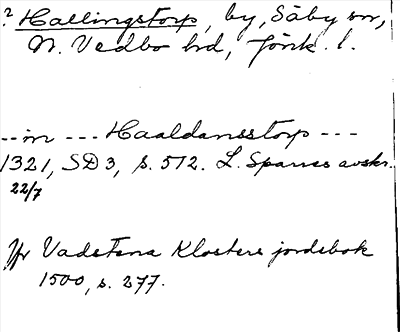 ? Hallingstorp, by, Säby sn,
N. Vedbo hd, Jönk. l.
--in --- Haaldansstorp ---
1321, SD 3, s. 512. L. Sparres avskr.
22/7
Jfr Vadstena Klosters jordebok
1500, s. 277.